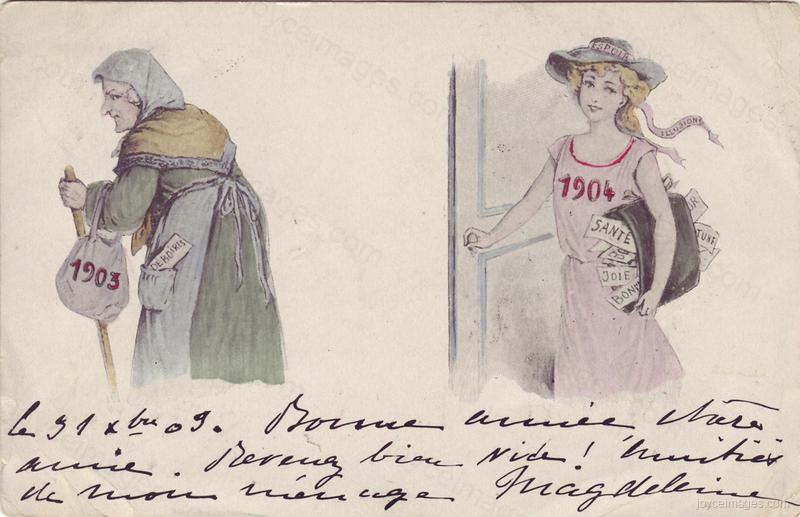 ESPOIR
ILLUSIONS
1904
SANTÉ
TUNE
JOIE
1903
le 31 xbre 03. Bonne année chère
amie. Revenez bien vite! Amitiés
de mon ménage Magdeleine
joyceimages.com